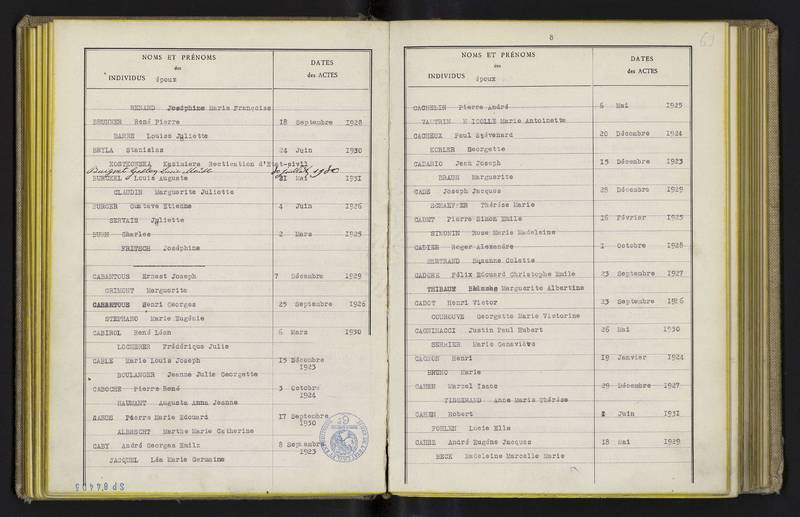 NOMS ET PRÉNOMS
des
INDIVIDUS époux
DATES
des ACTES
RENARD Joséphine Marie Françoise
BRUGGER René Pierre 18 Septembre 1928
BARRE Louise Juliette
BRYLA Stanislas 24 Juin 1930
KOSTKOWSKA Kazimiera Rectication d'Etat-civil
Juillet 1930
BURCKEL Louis Auguste 21 Mai 1931
CLAUDIN Marguerite Juliette
BURGER Gustave Etienne 4 Juin 1926
SERVAIS Juliette
BUSH Charles 2 Mars 1925
FRITSCH Joséphine
CABANTOUS Ernest Joseph 7 Décembre 1929
GRIMONT Marguerite
CABANTOUS Henri Georges 25 Septembre 1926
STEPHANO Marie Eugénie
CABIROL René Léon 6 Mars 1930
LOCHERER Frédérique Julie
CABLE Marie Louis Joseph 15 Décembre
1923
BOULANGER Jeanne Julie Georgette
CABOCHE Pierre René 3 Octobre
1924
HAUMANT Augusta Anna Jeanne
Pierre Marie Edouard 17 Septembre
1930
ALBRECHT Marthe Marie Catherine
CABY André Georges Emile 8 Septembre
1923
JACQUEL Léa Marie Germaine
8
NOMS ET PRÉNOMS
des
INDIVIDUS époux
DATES
des ACTES
CACHELIN Pierre André 6 Mai 1925
VAUTRIN NICOLLE Marie Antoinette
CACHEUX Paul Stévenard 20 Décembre 1924
KOBLER Georgette
CADARIO Jean Joseph 15 Décembre 1923
BRAUN Marguerite
CADE Joseph Jacques 28 Décembre 1929
SCHAEFFER Thérèse Marie
CADET Pierre Simon Emile 16 Février 1925
SIMONIN Rose Marie Madeleine
CADIER Roger Alexandre 1 Octobre 1928
BERTRAND Suzanne Colette
CADORE Félix Edouard Christophe Emile 23 Septembre 1927
THIBAUT Blanche Marguerite Albertine
CADOT Henri Victor 23 Septembre 1926
COUROUVE Georgette Marie Victorine
CAGNINACCI Justin Paul Hubert 26 Mai 1930
SERRIER Marie Geneviève
CAGNON Henri 19 Janvier 1924
BRUNO Marie
CAHEN Marcel Isaac 29 Décembre 1927
Anne Marie Thérèse
CAHEN Robert 2 Juin 1931
POHLEN Lucie Ella
CAHEZ André Eugène Jacques 18 Mai 1929
BECK Madeleine Marcelle Marie